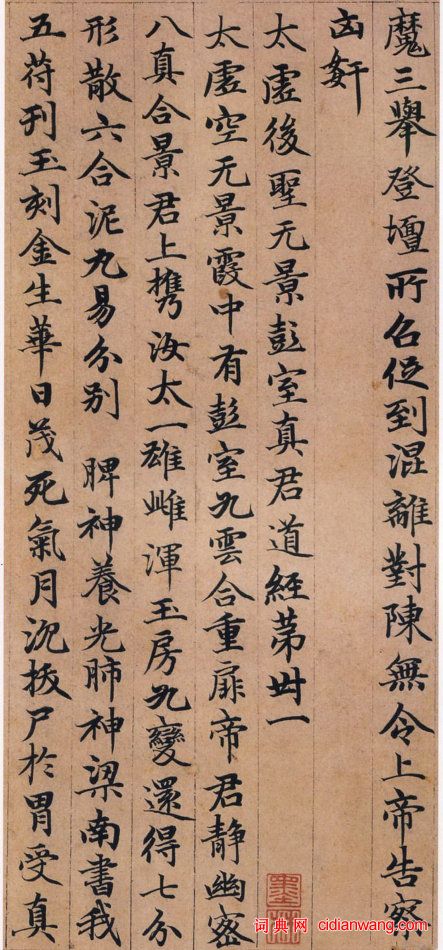 魔三舉登壇所召促到混離對陳無令上帝告察
凶姧
太虛後聖无景彭室真君道經苐卌一
太虛空无景霞中有彭室九雲合重扉帝君靜幽密
八真合景君上携汝太一雄雌渾玉房九變還得七分
形散六合泥丸易分別 脾神養光肺神梁南書我
五苻刊玉刻金生華日茂死氣月沉拔尸於胃受真
词典网 cidianwang.com